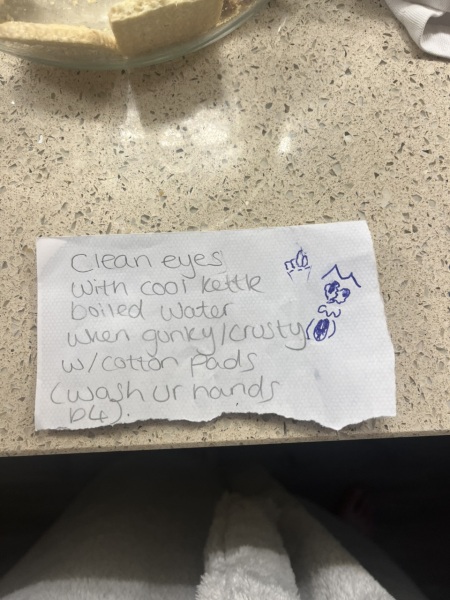 Clean eyes
with cool kettle
boiled water
when gunky/crusty
w/cotton pads
(wash ur hands
b4).